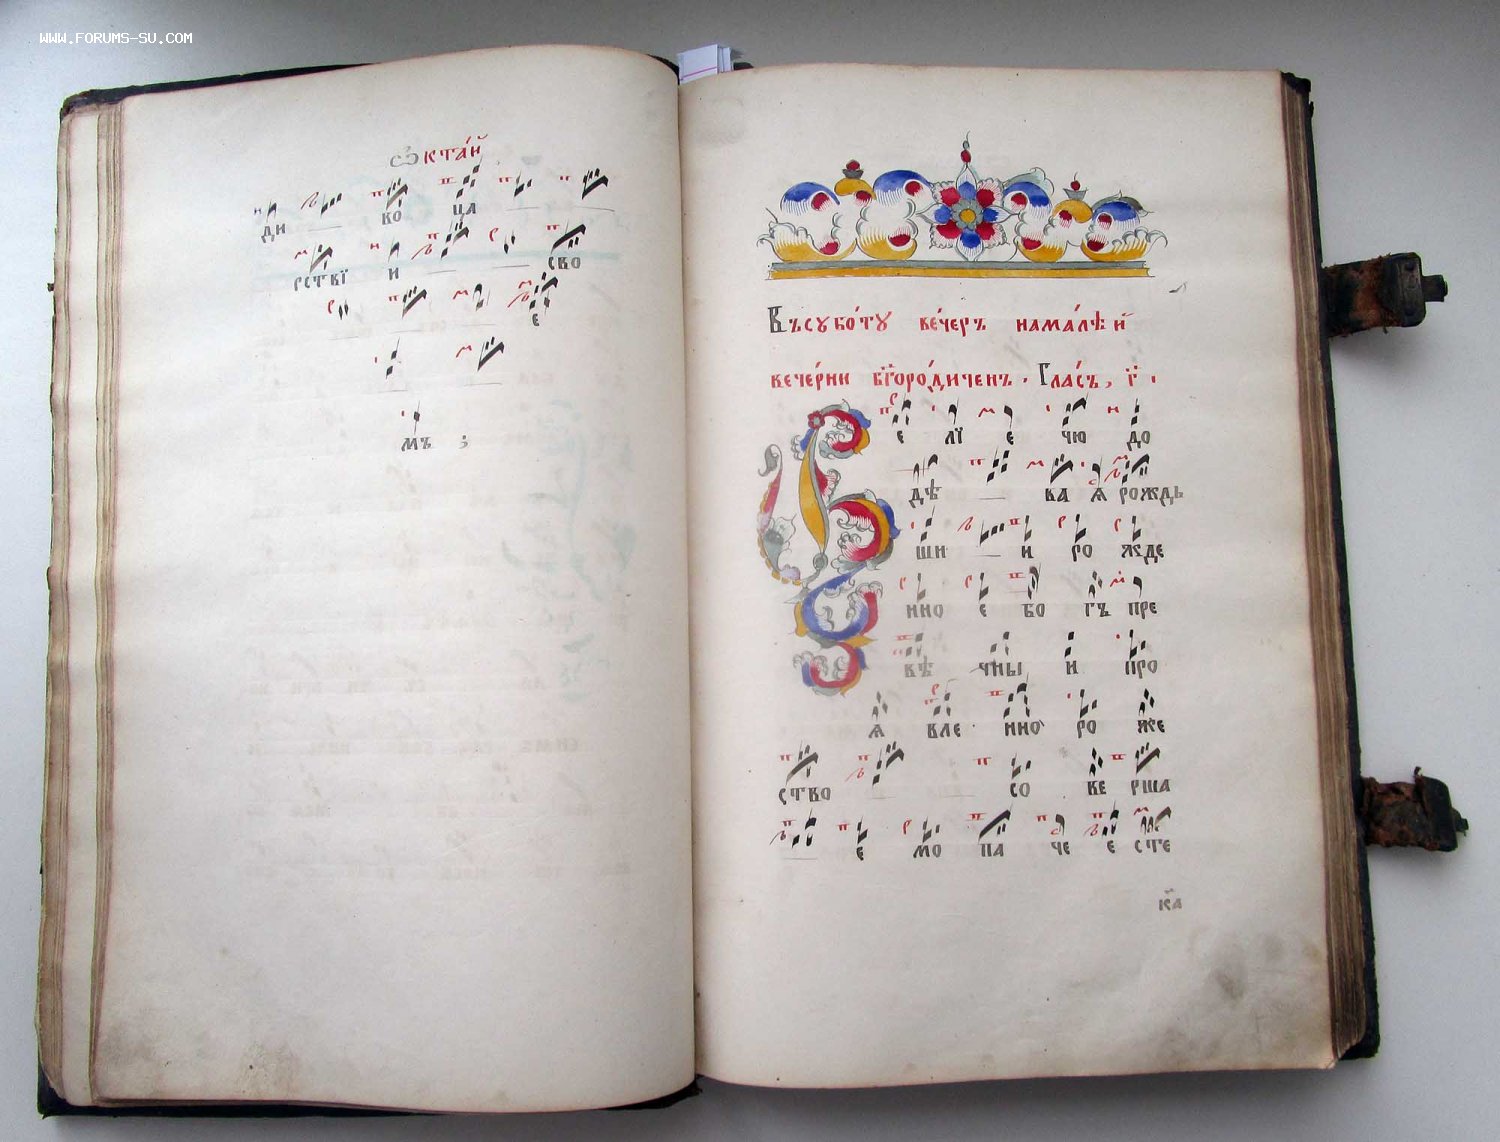 WWW.FORUMS-SU.COM
Ѻктай
ди ко ца
рствїи и сво
е
мъ ;
Въ суботу вечеръ на малѣй
вечерни бг҃ородиченъ. Гласъ, г҃.
е лї е чю до
дѣ ва я рождь
ши и ро жде
нно е бо гъ пре
вѣ чны и про
я вле нно ро же
ство со ве рша
е мо па че е сте
к҃а